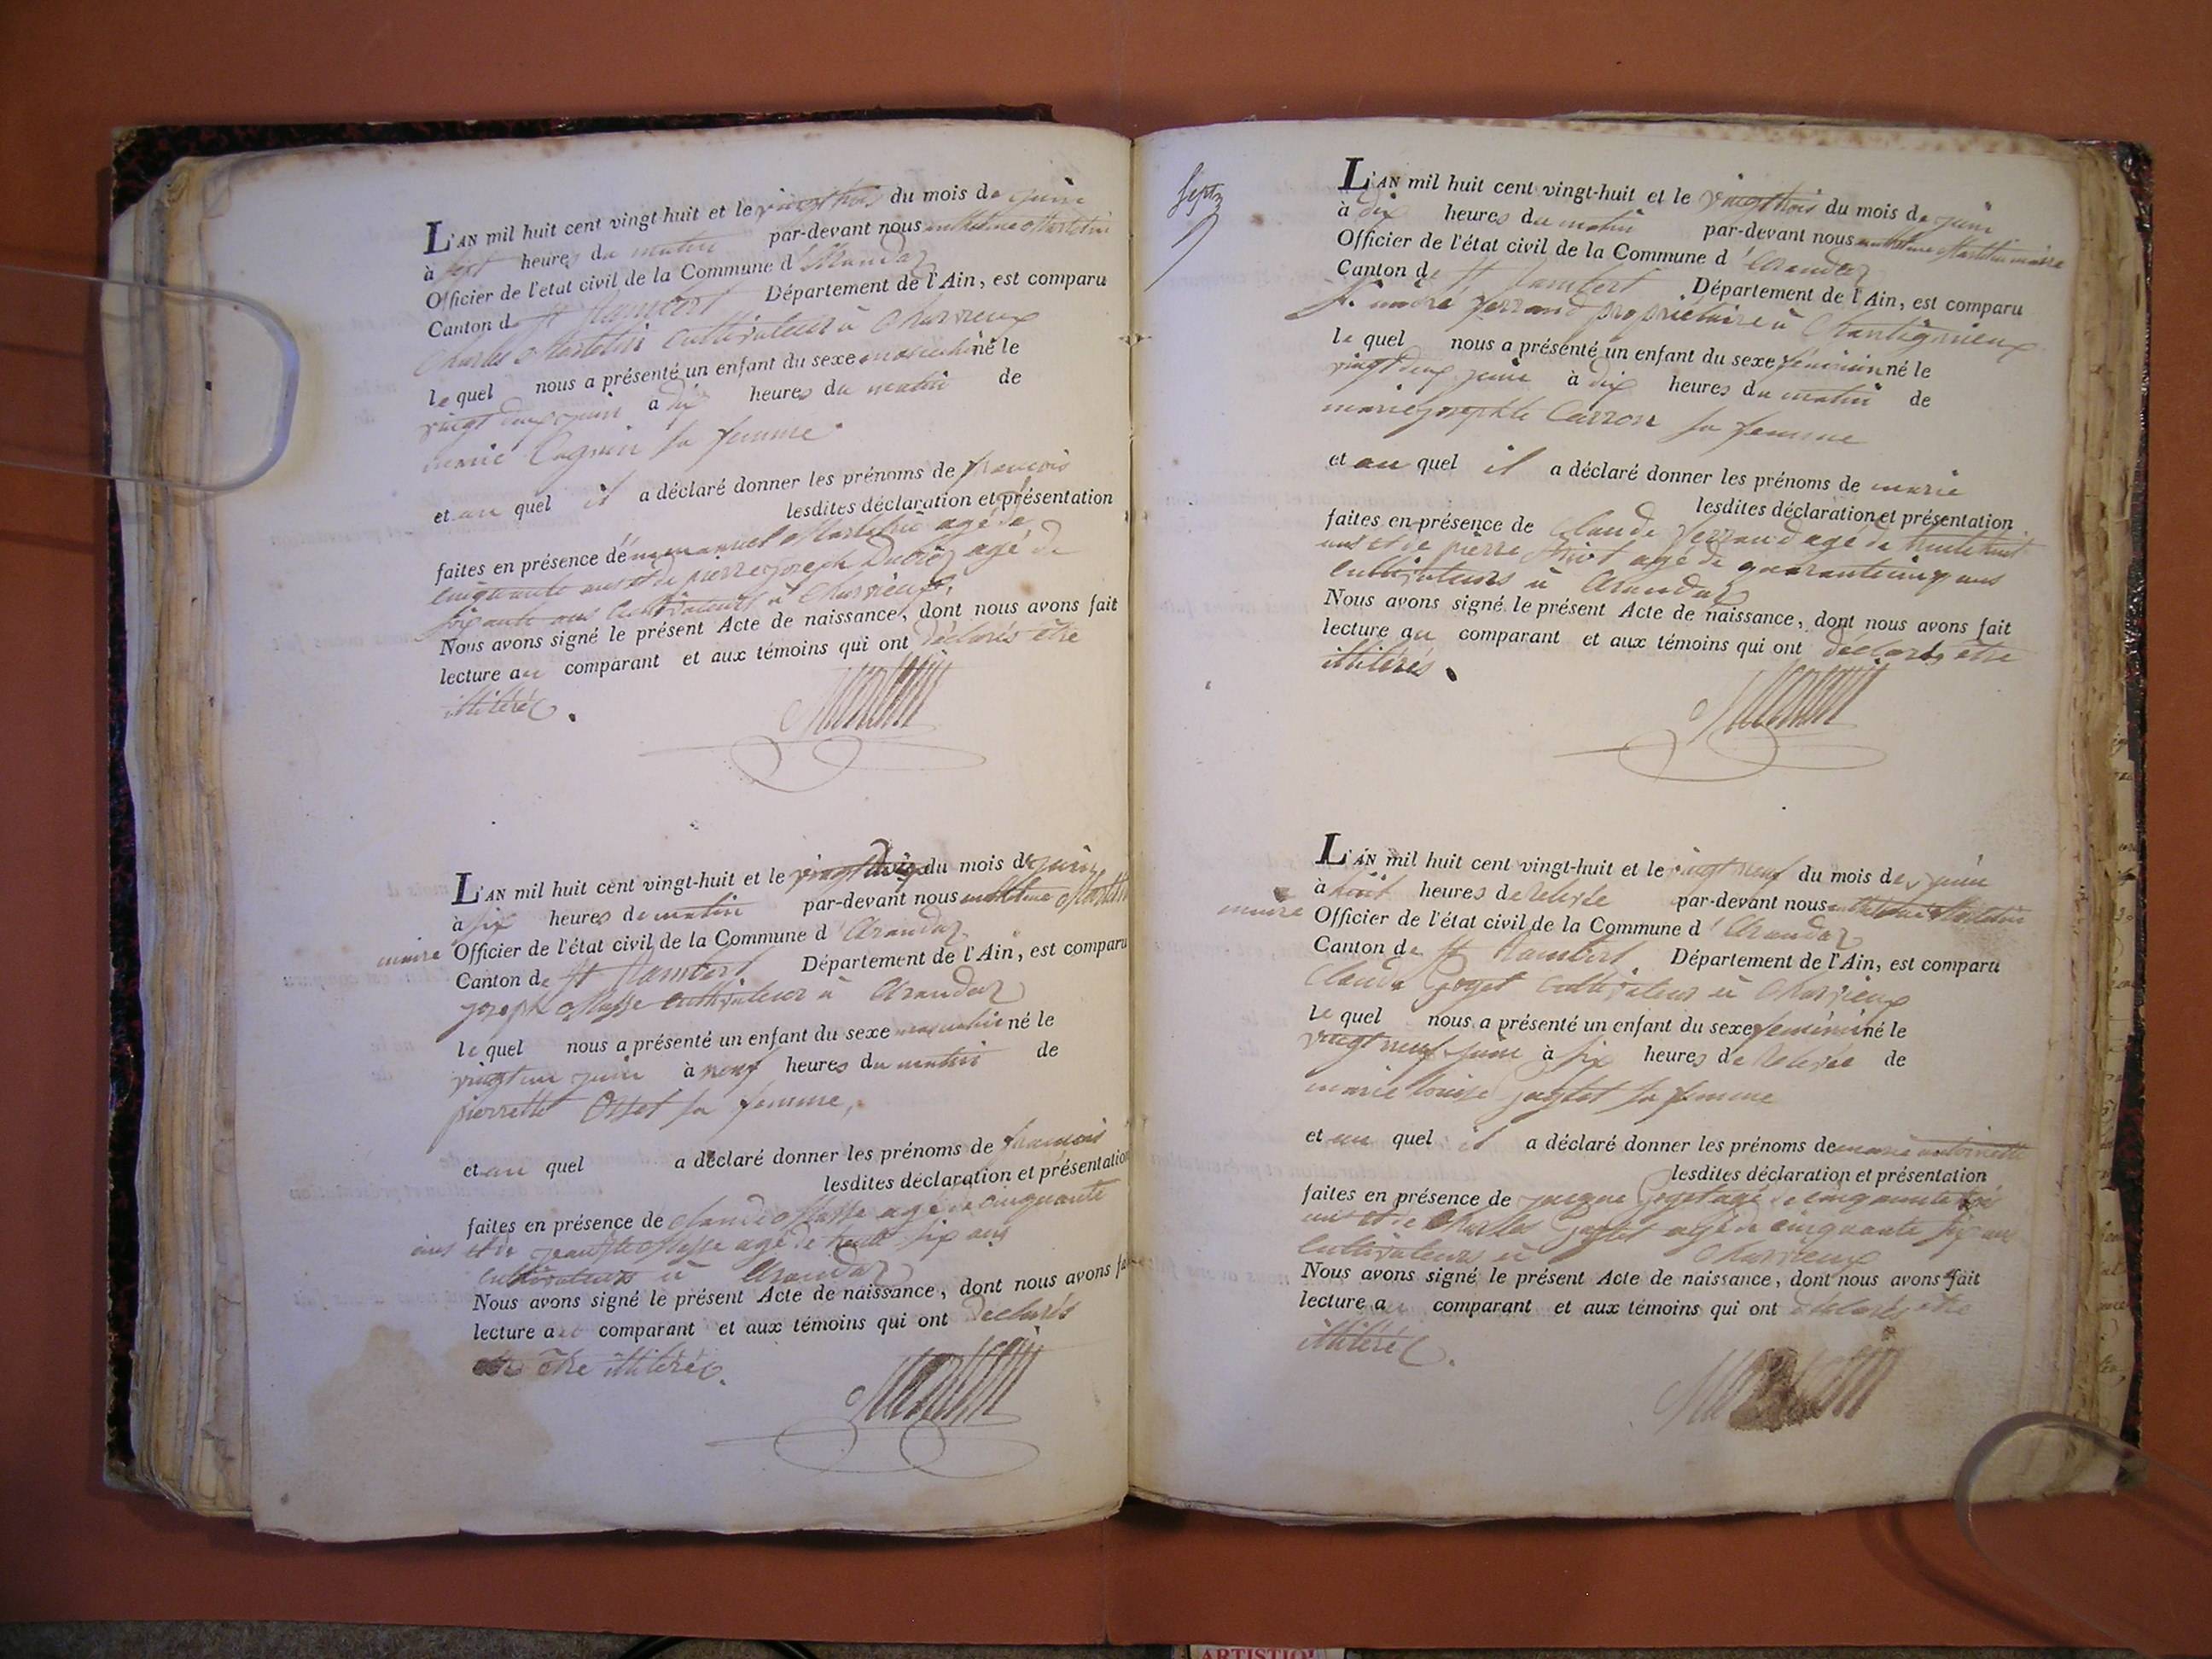 L'AN mil huit cent vingt huit et le vingt trois du mois de juin
à sept heures du matin par-devant nous anthelme Martelin
Officier de l'état civil de la Commune d'Arandaz
Canton de St Rambert Département de l'Ain, est comparu
Charles Martelin cultivateur à Charvieux
lequel nous a présenté un enfant du sexe masculin né le
vingt deux juin à dix heures du matin de
marie Cagnin sa femme
et au quel il a déclaré donner les prénoms de françois
lesdites déclaration et présentation
faites en présence d'emmanuel Martelin agé de
cinquante ans et de pierre joseph agé de
soixante ans cultivateurs à Charvieux,
Nous avons signé le présent Acte de naissance, dont nous avons fait
lecture au comparant et aux témoins qui ont déclarés être
illitérés.
Martelin
L'AN mil huit cent vingt-huit et le du mois de juin
à six heures du matin par-devant nous anthelme Martelin
maire Officier de l'état civil de la Commune d'Arandaz
Canton de St Rambert Département de l'Ain, est comparu
joseph Masse cultivateur à Arandaz
le quel nous a présenté un enfant du sexe masculin né le
vingt un juin à neuf heures du matin de
pierrette sa femme,
et au quel a déclaré donner les prénoms de françois
lesdites déclaration et présentation
faites en présence de claude Masse agé de cinquante
ans et de jean Masse agé de trente six ans
cultivateurs à Arandaz
Nous avons signé le présent Acte de naissance, dont nous avons
lecture au comparant et aux témoins qui ont declarés
être illitérés.
Martelin
Sept
L'AN mil huit cent vingt-huit et le vingt trois du mois de juin
à dix heures du matin par-devant nous anthelme Martelin maire
Officier de l'état civil de la Commune d'Arandaz
Canton de St Rambert Département de l'Ain, est comparu
ferrand propriétaire à Chantignieux
le quel nous a présenté un enfant du sexe féminin né le
vingt deux juin à dix heures du matin de
marie josephte Carron sa femme
et au quel il a déclaré donner les prénoms de marie
lesdites déclaration et présentation
faites en présence de Claude ferrand agé de trente huit
ans et de pierre agé de quarante cinq ans
cultivateurs à Arandaz
Nous avons signé le présent Acte de naissance, dont nous avons fait
lecture au comparant et aux témoins qui ont déclarés être
illitérés.
Martelin
L'AN mil huit cent vingt-huit et le vingt neuf du mois de juin
à huit heures de relevée par-devant nous anthelme Martelin
maire Officier de l'état civil de la Commune d'Arandaz
Canton de St Rambert Département de l'Ain, est comparu
Claude Goget cultivateur à Charvieux
le quel nous a présenté un enfant du sexe feminin né le
vingt neuf juin à six heures de relevée de
marie louise sa femme
et au quel il a déclaré donner les prénoms de marie antoinette
lesdites déclaration et présentation
faites en présence de jacque Goget agé de cinquante
ans et de Charles agé de cinquante six ans
cultivateurs à Charvieux
Nous avons signé le présent Acte de naissance, dont nous avons fait
lecture au comparant et aux témoins qui ont déclarés être
illitérés.
Martelin